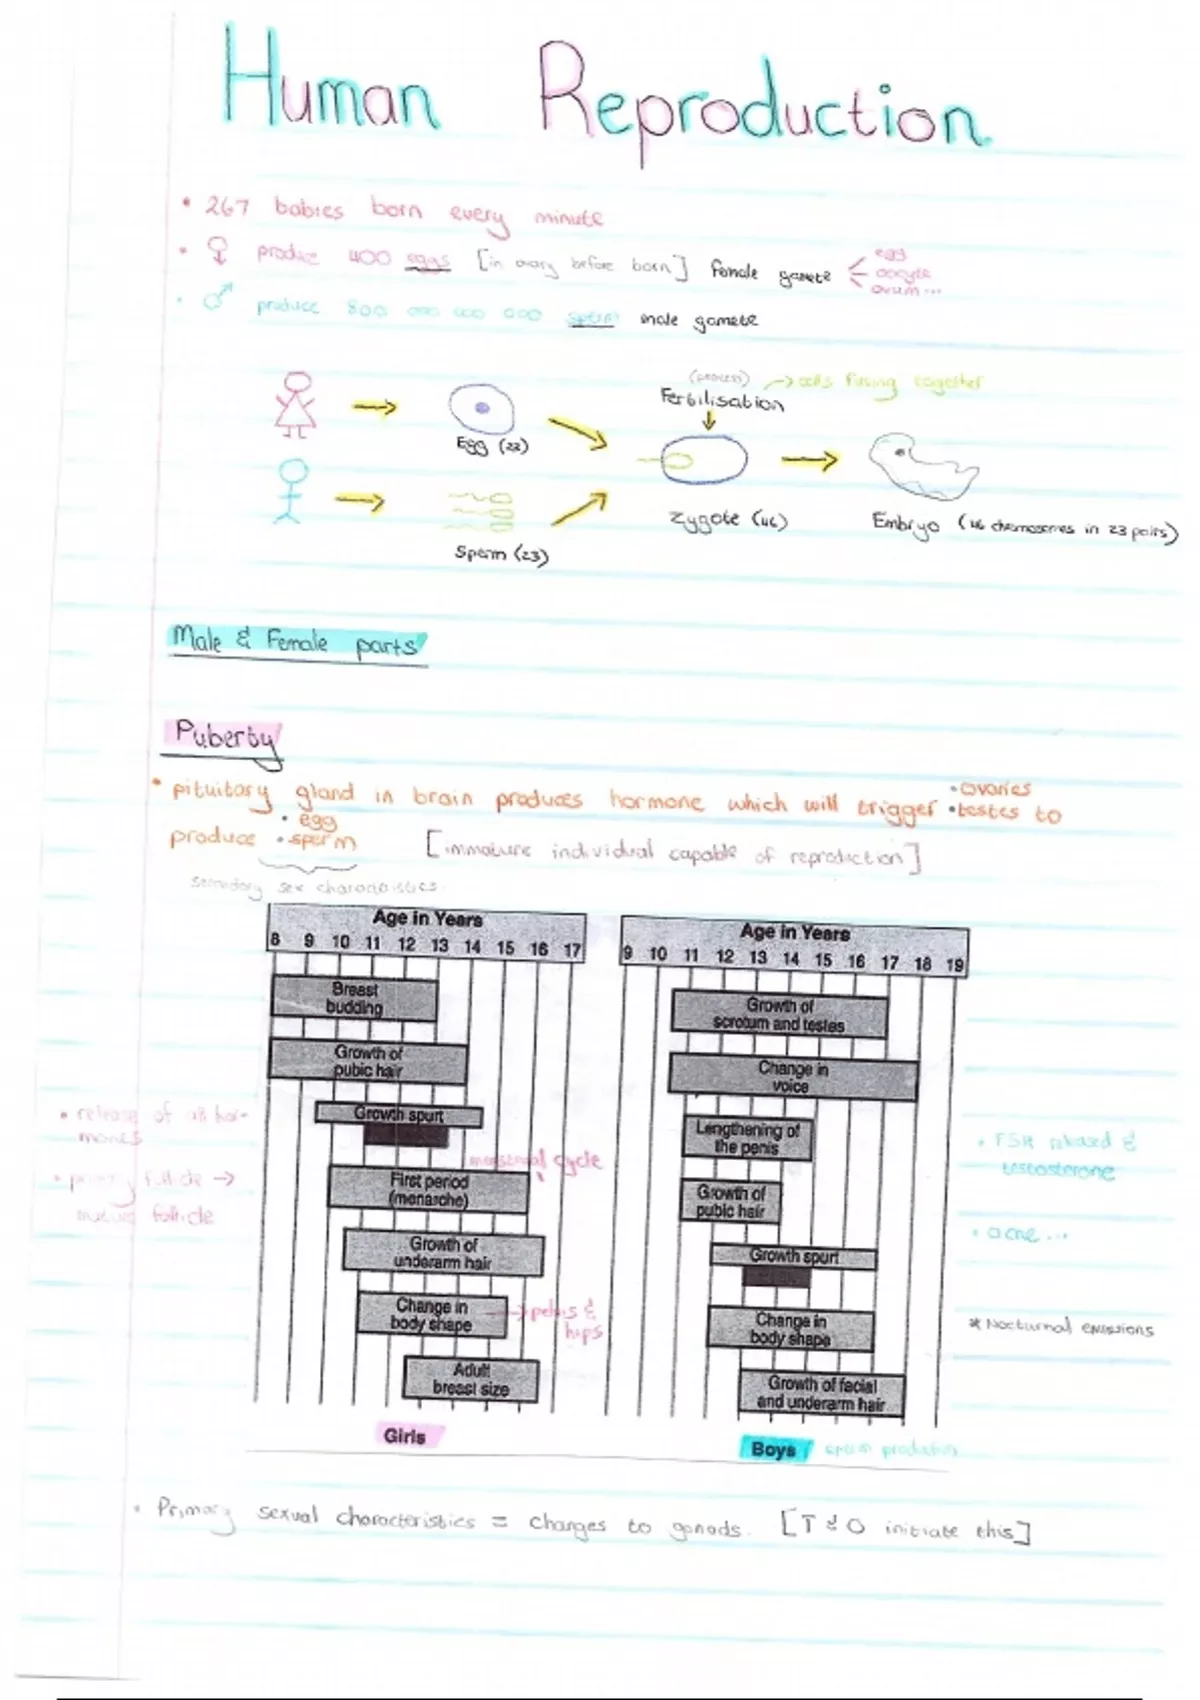 Human Reproduction
• 267 babies born every minute
• ♀ produce 400 eggs [in ovary before born] female gamete egg
oocyte
ovum...
• ♂ produce 800 000 000 000 sperm male gamete
(process) → cells fusing together
Fertilisation
Egg (23)
Zygote (46)
Embryo (46 chromosomes in 23 pairs)
Sperm (23)
Male & Female parts
Puberty
• pituitary gland in brain produces hormone which will trigger • ovaries
• testes to
produce • egg
• sperm
[immature individual capable of reproduction]
secondary sex characteristics
Age in Years
8 9 10 11 12 13 14 15 16 17
Breast
budding
Growth of
pubic hair
Growth spurt
menstrual cycle
First period
(menarche)
Growth of
underarm hair
Change in
body shape
→ pelvis &
hips
Adult
breast size
Girls
• release of all hor-
mones
• primary follicle →
mature follicle
Age in Years
9 10 11 12 13 14 15 16 17 18 19
Growth of
scrotum and testes
Change in
voice
Lengthening of
the penis
Growth of
pubic hair
Growth spurt
Change in
body shape
Growth of facial
and underarm hair
Boys sperm production
• FSH released &
testosterone
• acne...
* Nocturnal emissions
• Primary sexual characteristics = changes to gonads. [T & O initiate this]